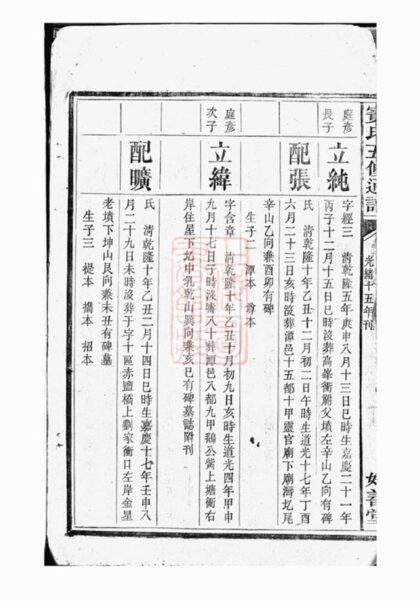 氏五修通譜
光緒十五年刊
庭彥長子
立純
字經三 清乾隆五年庚申八月十三日巳時生嘉慶二十一年
丙子十二月十五日巳時沒葬高峯衝廟父墳左辛山乙向有碑
配張
氏 清乾隆十年乙丑十二月初二日午時生道光十七年丁酉
六月二十三日亥時沒葬潭邑十五都十甲靈官廟下廟灣圫尾
辛山乙向兼酉卯有碑
生子二 潭本 章本
庭彥次子
立緯
字含章 清乾隆十年乙丑十月初九日亥時生道光四年甲申
九月十七日子時沒壽八十葬潭邑八都九甲鷄公嘴上塘衝右
岸住屋下圫中乳乾山巽向兼亥巳有碑墓誌附刊
配曠
氏 清乾隆十年乙丑二月十四日巳時生嘉慶十七年壬申八
月二十九日未時沒葬于字十區赤鹽橋上劉家衝口左岸金星
老墳下坤山艮向兼未丑有碑墓
生子三 提本 擂本 招本